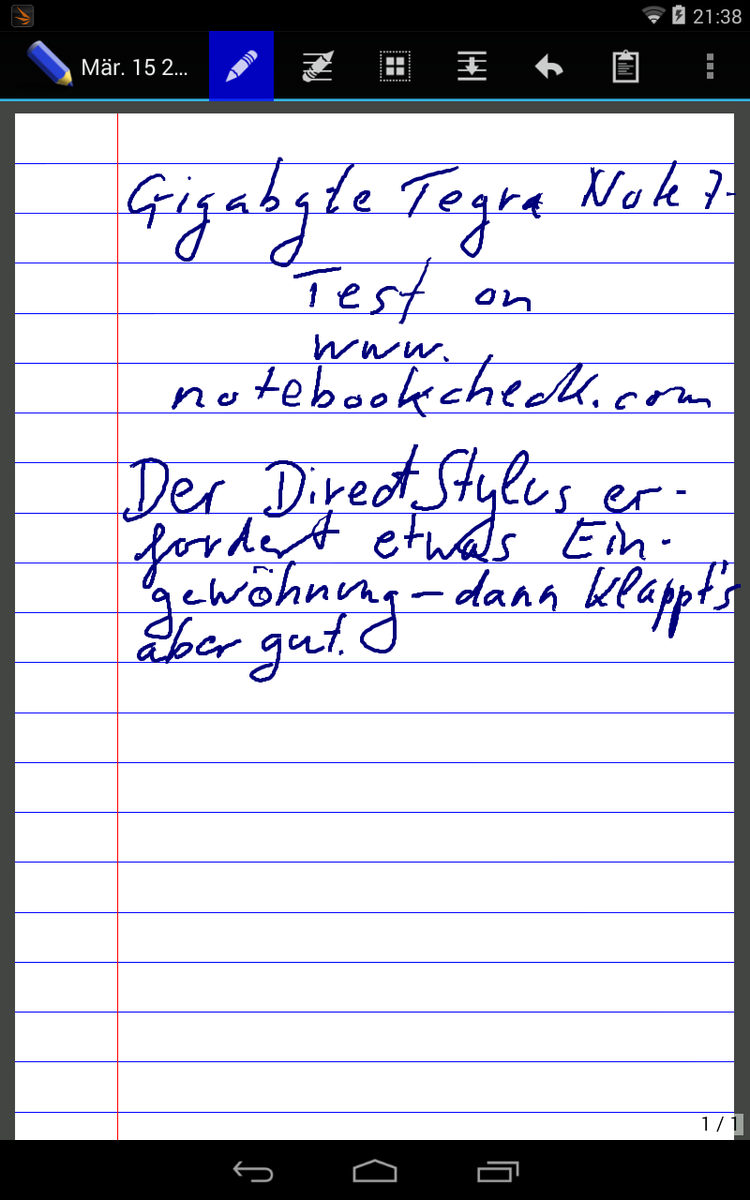 21:38
Mär. 15 2...
Gigabyte Tegra Note 7-
Test on
www.
notebookcheck.com
Der DirectStylus er-
fordert etwas Ein-
gewöhnung – dann klappt's
aber gut.
1 / 1